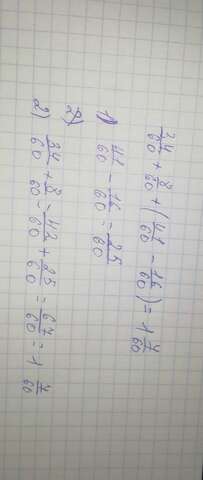 34/60 + 8/60 + (41/60 - 16/60) = 1 7/60
1) 41/60 - 16/60 = 25/60
2) 34/60 + 8/60 = 42/60 + 25/60 = 67/60 = 1 7/60